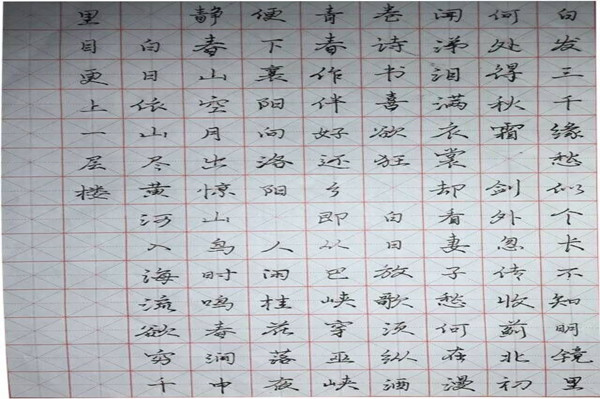 白发三千缘愁似个长不知明镜里
何处得秋霜 剑外忽传收蓟北初
闻涕泪满衣裳却看妻子愁何在漫
卷诗书喜欲狂 白日放歌须纵酒
青春作伴好还乡即从巴峡穿巫峡
便下襄阳向洛阳 人闲桂花落夜
静春山空月出惊山鸟时鸣春涧中
白日依山尽黄河入海流欲穷千
里目更上一层楼